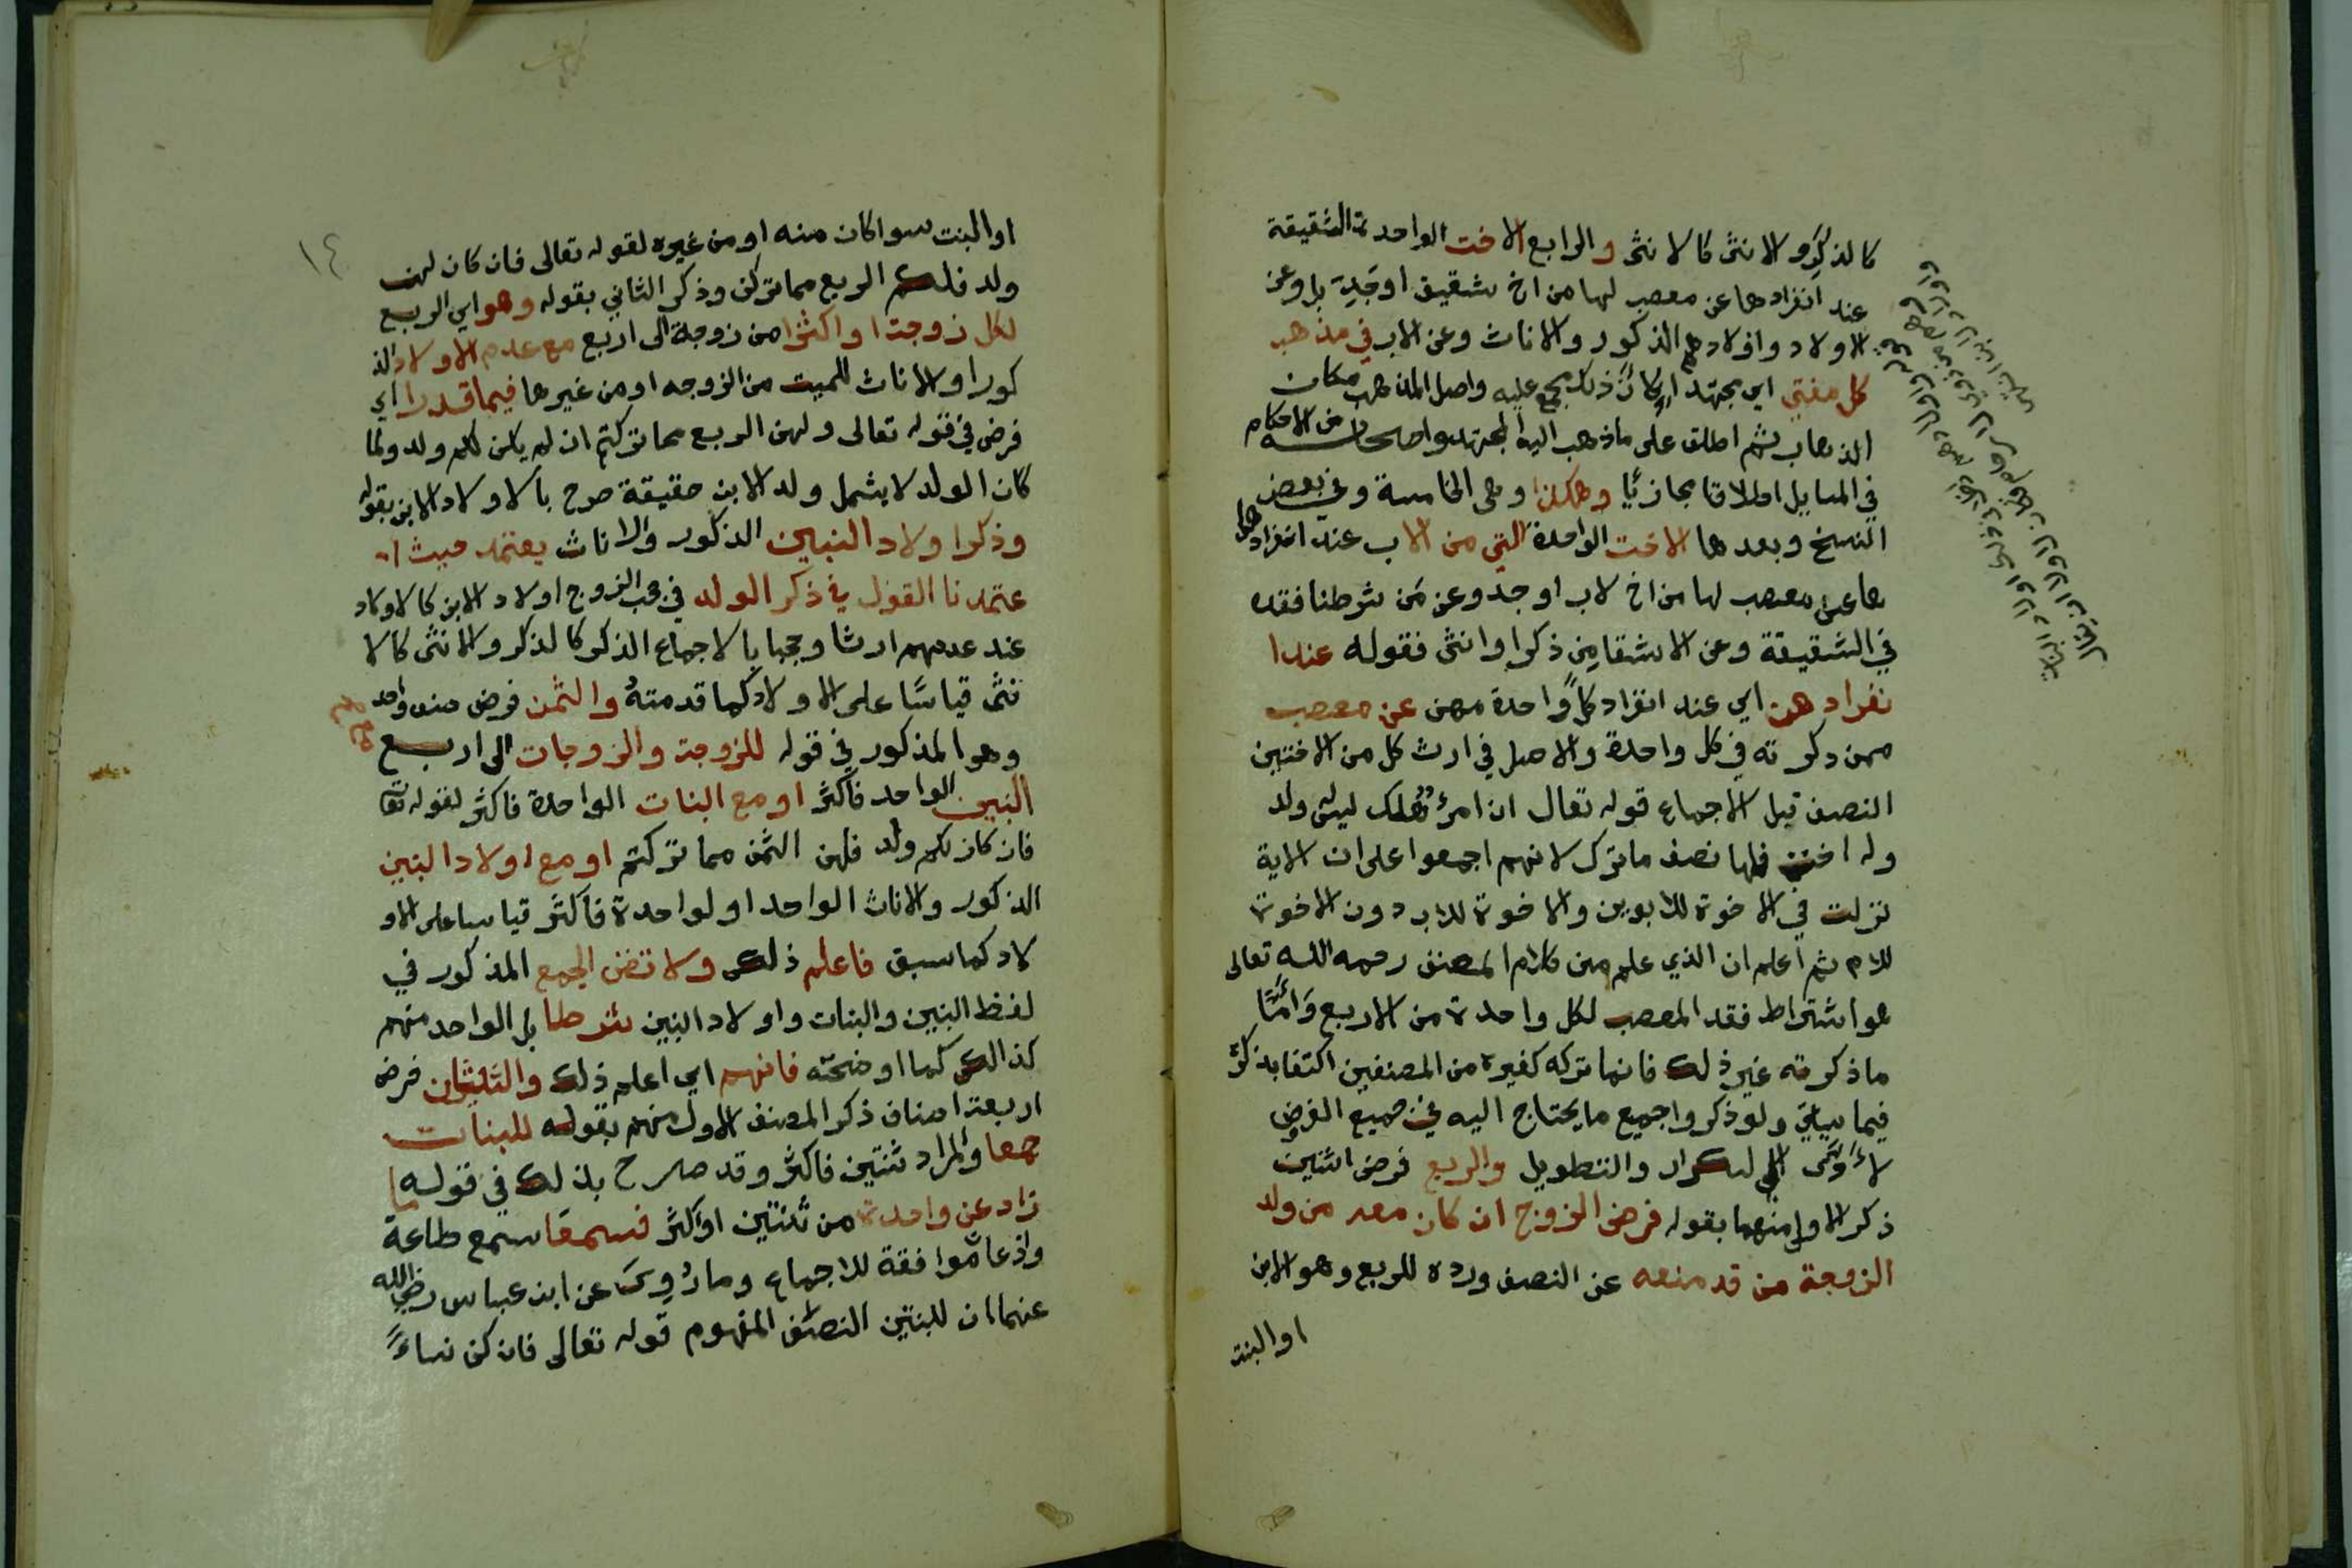 كالذكر والانثى كالانثى والرابع الاخت الواحدة الشقيقة
عند انفرادها عن معصب لها من اخ شقيق اوجد بل وعن
الاولاد واولادهم الذكور والاناث وعن الاب في مذهب
كل مفتي اي مجتهد اي كان ذلك مجمع عليه واصل المذهب مكان
الذهاب ثم اطلق على ماذهب اليه المجتهد واصحابه من الاحكام
في المسايل اطلاقا مجازيا وهكذا وهي الخامسة وفي بعض
النسخ وبعدها الاخت الواحدة التي من الاب عند انفراد
ها عن معصب لها من اخ لاب اوجد وعن من شرطنا فقده
في الشقيقة وعن الاشقا من ذكر اوانثى فقوله عندا
نفرادهن اي عند انفراد كل واحدة مهن عن معصب
ممن دكرته في كل واحدة والاصل في ارث كل من الاختين
النصف قبل الاجماع قوله تعالى ان امرؤ هلك ليس له ولد
وله اخت فلها نصف ماترك لانهم اجمعوا على ان الاية
نزلت في الاخوة للابوين والاخوة للاب دون الاخوة
للام ثم اعلم ان الذي علم من كلام المصنف رحمه الله تعالى
هو اشتراط فقد المعصب لكل واحدة من الاربع واما
ماذكرته غير ذلك فانما تركه كغيره من المصنفين اكتفا بذكره
فيما سياتي ولو ذكروا جميع مايحتاج اليه في جميع الفرض
لادى الى التكرار والتطويل والربع فرض اثنين
ذكر الاول منهما بقوله فرض الزوج ان كان معه من ولد
الزوجة من قد منعه عن النصف ورده للربع وهو الابن
اوالبنت
١٤
اوالبنت سواكان منه اومن غيره لقوله تعالى فان كان لهن
ولد فلكم الربع مما تركن وذكر الثاني بقوله وهو اي الربع
لكل زوجة اواكثرا من زوجة الى اربع مع عدم الاولاد الذ
كور او الاناث للميت من الزوجه اومن غيرها فيما قدرا اي
فرض في قوله تعالى ولهن الربع مما تركتم ان لم يكن لكم ولد ولما
كان الولد لا يشمل ولد الابن حقيقة صرح بالاولاد الابن بقوله
وذكر اولاد البنين الذكور والاناث يعتمد حيث ا
عتمدنا القول في ذكر الولد في حجب الزوج اولاد الابن كالاولاد
عند عدمهم ارثا وحجبا بالاجماع الذكر كالذكر والانثى كالا
نثى قياسا على الاولاد كما قدمته والثمن فرض صنف واحد
وهو المذكور في قوله للزوجة والزوجات الى اربع مع
البنين الواحد فاكثر اومع البنات الواحدة فاكثر لقوله تعا
فان كان لكم ولد فلهن الثمن مما تركتم اومع اولاد البنين
الذكور والاناث الواحد اولواحدة فاكثر قياسا على الاو
لاد كما سبق فاعلم ذلك ولا تضن الجمع المذكور في
لفظ البنين والبنات واولاد البنين شرطا بل الواحد منهم
كذالك كما اوضحته فافهم اي اعلم ذلك والثلثان فرض
اربعة اصناف ذكر المصنف الاول منهم بقوله للبنات
جمعا والمراد ثنتين فاكثر وقد صرح بذلك في قوله ما
زاد عن واحدة من ثنتين اواكثر فسمعا سمع طاعة
واذعا موافقة للاجماع وماروي عن ابن عباس رضي الله
عنهما ان للبنتين النصف المفهوم قوله تعالى فان كن نساء